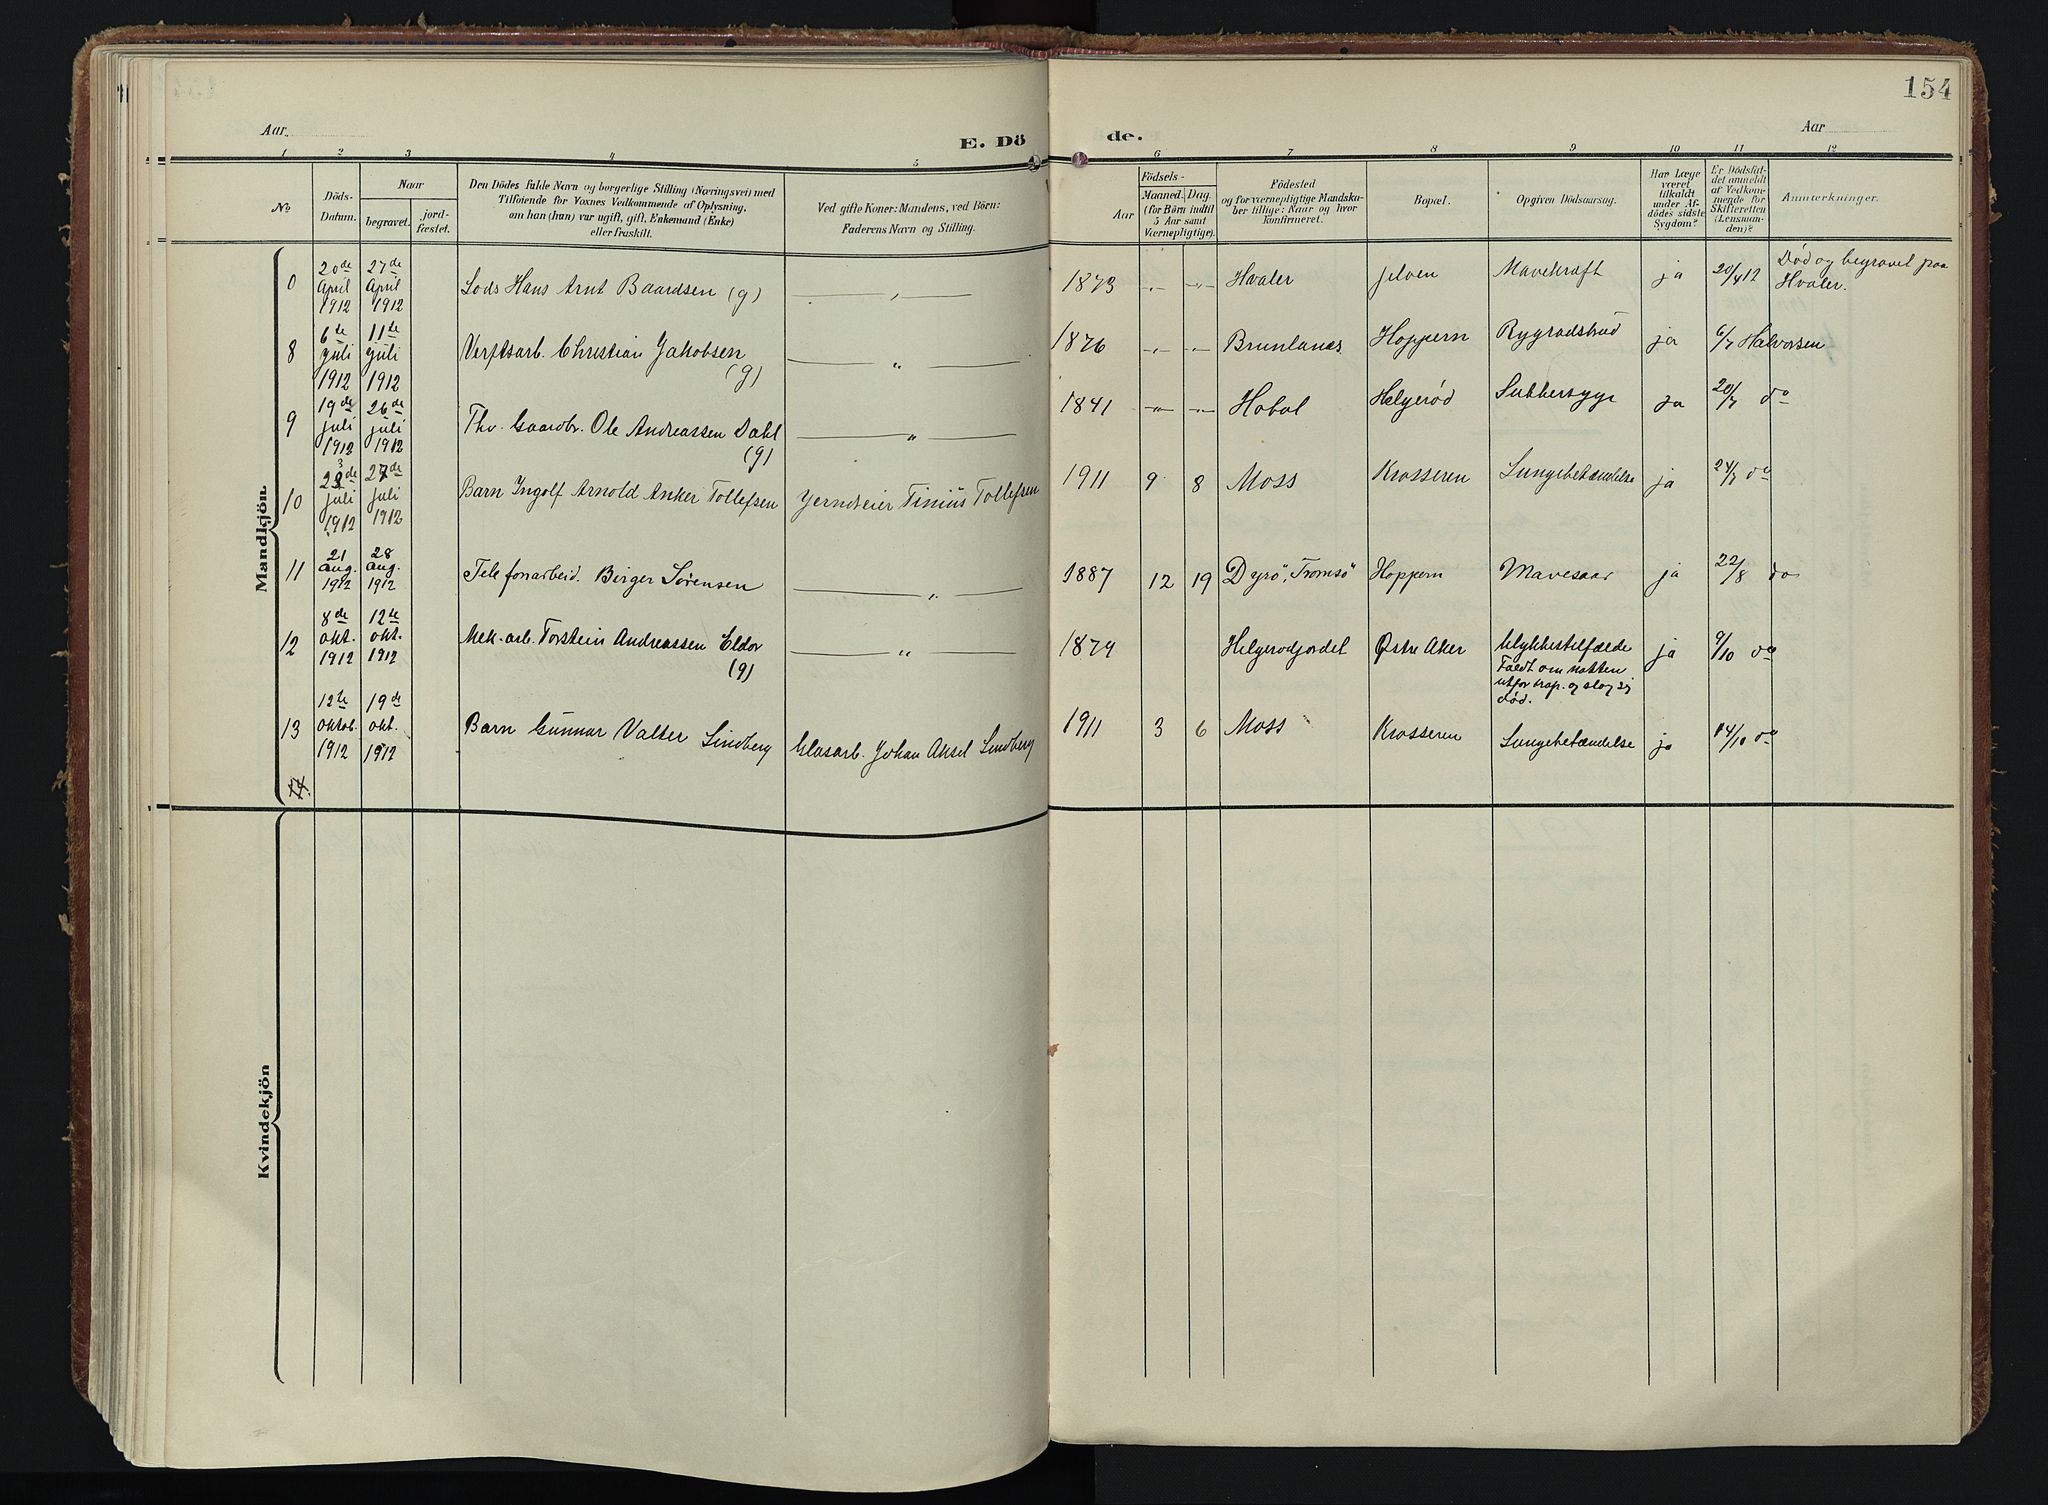 154
Aar
E. Dö
de.
Aar
1 2 3 4 5 6 7 8 9 10 11 12
No
Döds-
Datum.
Naar
begravet.
jord-
fæstet.
Den Dödes fulde Navn og borgerlige Stilling (Næringsvei) med
Tilföiende for Voxnes Vedkommende af Oplysning,
om han (hun) var ugift, gift, Enkemand (Enke)
eller fraskilt.
Ved gifte Koner: Mandens, ved Börn:
Faderens Navn og Stilling.
Födsels-
Aar
Maaned. Dag.
(for Börn indtil
5 Aar samt
Værnepligtige).
Födested
og for værnepligtige Mandska-
ber tillige: Naar og hvor
konfirmeret.
Bopæl.
Opgiven Dödsaarsag.
Har Læge
været
tilkaldt
under Af-
dödes sidste
Sygdom?
Er Dödsfal-
det anmeldt
af Vedkom-
mende for
Skifteretten
(Lensman-
den)?
Anmærkninger.
Mandkjön.
0 20de April 1912 27de April 1912 Lods Hans Arnt Baardsen (g) — „ — 1873 -„- -„- Hvaler Jeløen Mavekræft ja 20/4 12 Død og begravet paa
Hvaler.
8 6te juli 1912 11te juli 1912 Verftsarb. Christian Jakobsen
(g) — „ — 1876 -„- -„- Brunlanes Hoppern Rygradsbrud ja 6/7 Halvorsen
9 19de juli 1912 26de juli 1912 Fhv. Gaardbr. Ole Andreassen Dahl
(g) — „ — 1841 -„- -„- Hobøl Helgerød Sukkersyge Ja 20/7 do
10 23de juli 1912 27de juli 1912 Barn Ingolf Arnold Anker Tollefsen Jerndreier Tinius Tollefsen 1911 9 8 Moss Krosseren Lungebetændelse ja 24/7 do
11 21 aug. 1912 28 aug. 1912 Telefonarbeid. Birger Sørensen — „ — 1887 12 19 Dyrö, "Tromsö" Hoppern Mavesaar ja 22/8 do
12 8de okt. 1912 12te okt. 1912 Mek. arb. Torstein Andreassen Eldor
(g) — „ — 1879 Helgerødjordet Østre Aker Ulykkestilfælde
Faldt om natten
utfor trap. og slog sig
død. ja 9/10 do
13 12te oktob. 1912 19de okt. 1912 Barn Gunnar Valter Lindberg Glasarb. Johan Aksel Lindberg 1911 3 6 Moss Krosseren Lungebetændelse ja 14/10 do
14.
Kvindekjön